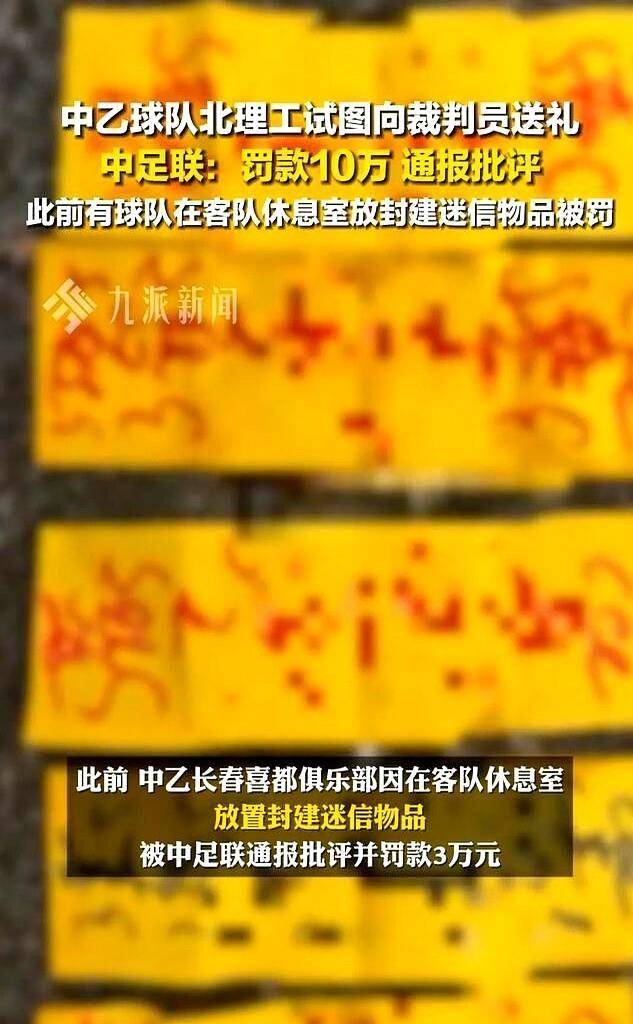 中乙球队北理工试图向裁判员送礼
中足联：罚款10万 通报批评
此前有球队在客队休息室放封建迷信物品被罚
九派新闻
此前 中乙长春喜都俱乐部因在客队休息室
放置封建迷信物品
被中足联通报批评并罚款3万元